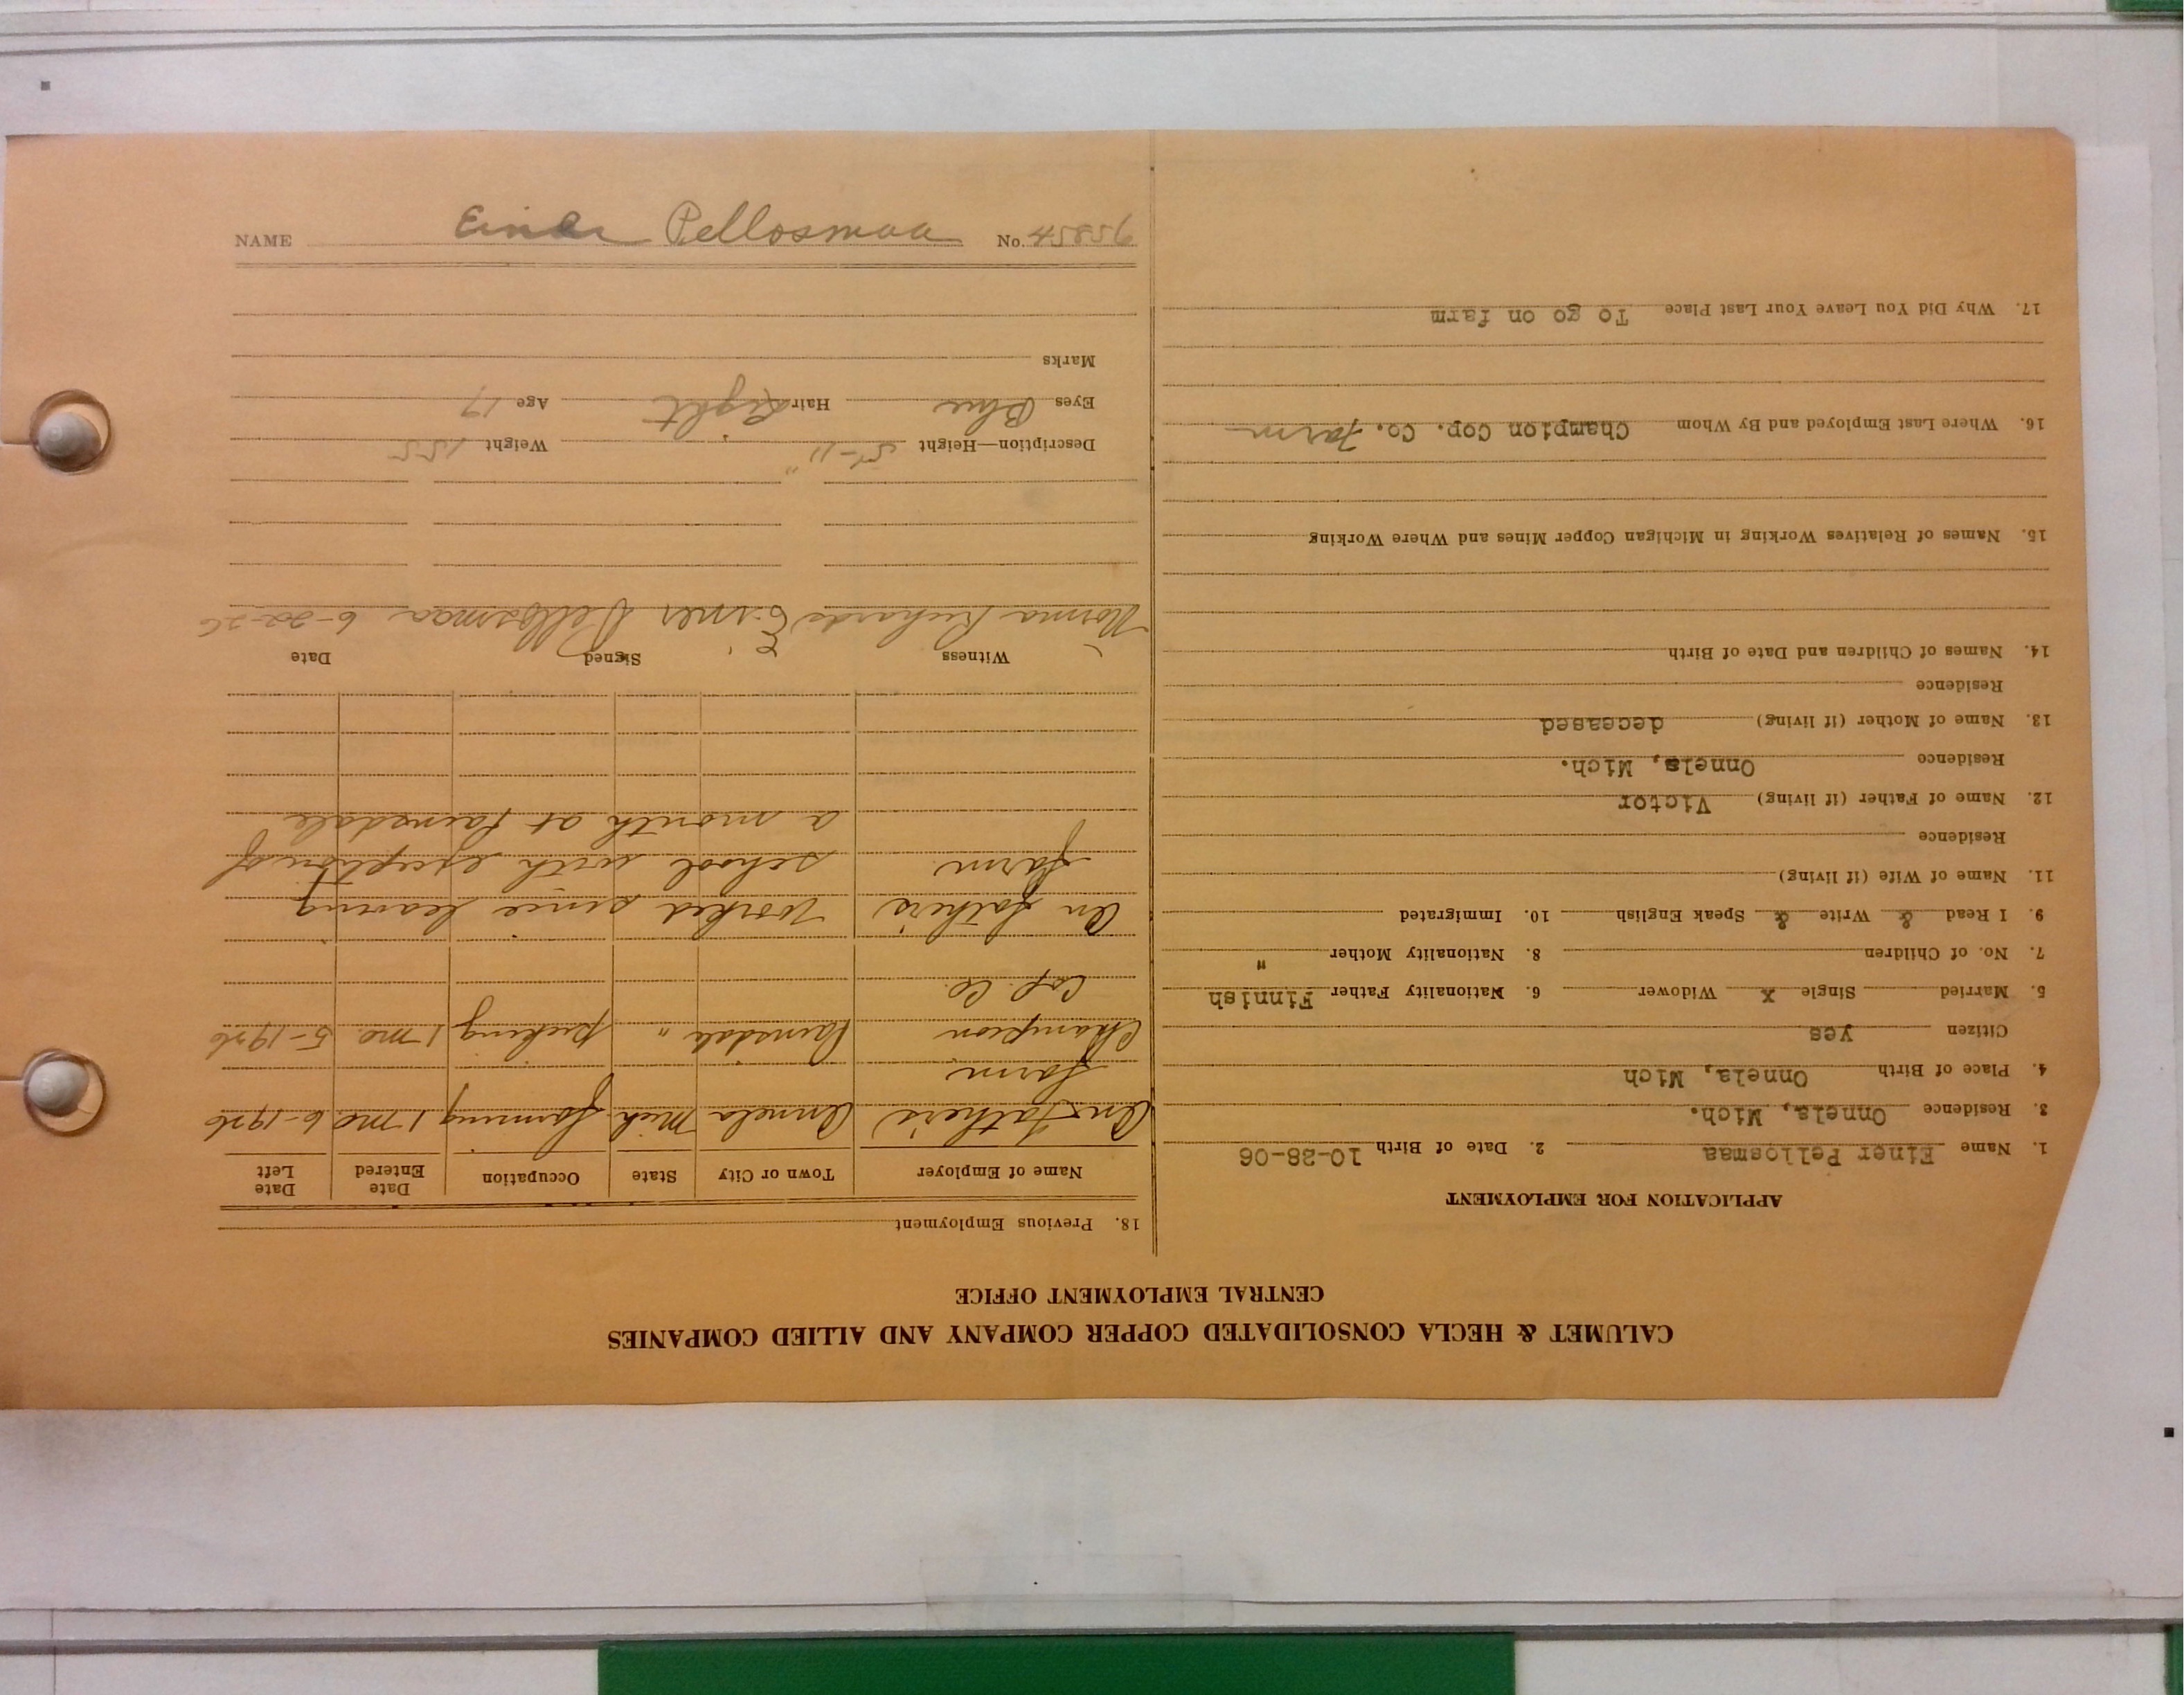 CALUMET & HECLA CONSOLIDATED COPPER COMPANY AND ALLIED COMPANIES
CENTRAL EMPLOYMENT OFFICE
APPLICATION FOR EMPLOYMENT
1. Name Einer Pellosmaa 2. Date of Birth 10-28-06
3. Residence Onnela, Mich.
4. Place of Birth Onnela, Mich
Citizen yes
5. Married Single X Widower 6. Nationality Father Finnish
7. No. of Children 8. Nationality Mother "
9. I Read & Write & Speak English 10. Immigrated
11. Name of Wife (if living)
Residence
12. Name of Father (if living) Victor
Residence Onnela, Mich.
13. Name of Mother (if living) deceased
Residence
14. Names of Children and Date of Birth
15. Names of Relatives Working in Michigan Copper Mines and Where Working
16. Where Last Employed and By Whom Champion Cop. Co. Farm
17. Why Did You Leave Your Last Place To go on farm
18. Previous Employment
Name of Employer Town or City State Occupation Date Entered Date Left
On father's Onnela Mich farming 1 mo 6-1926
farm
Champion Painsdale " picking 1 mo. 5-1926
Cop. Co
On father's worked since leaving
farm school with exception of
a month at Painsdale
Witness Signed Date
Norma Richards Einer Pellosmaa 6-22-26
Description—Height 5'-11" Weight 155
Eyes Blue Hair Light Age 19
Marks
NAME Einer Pellosmaa No. 45856